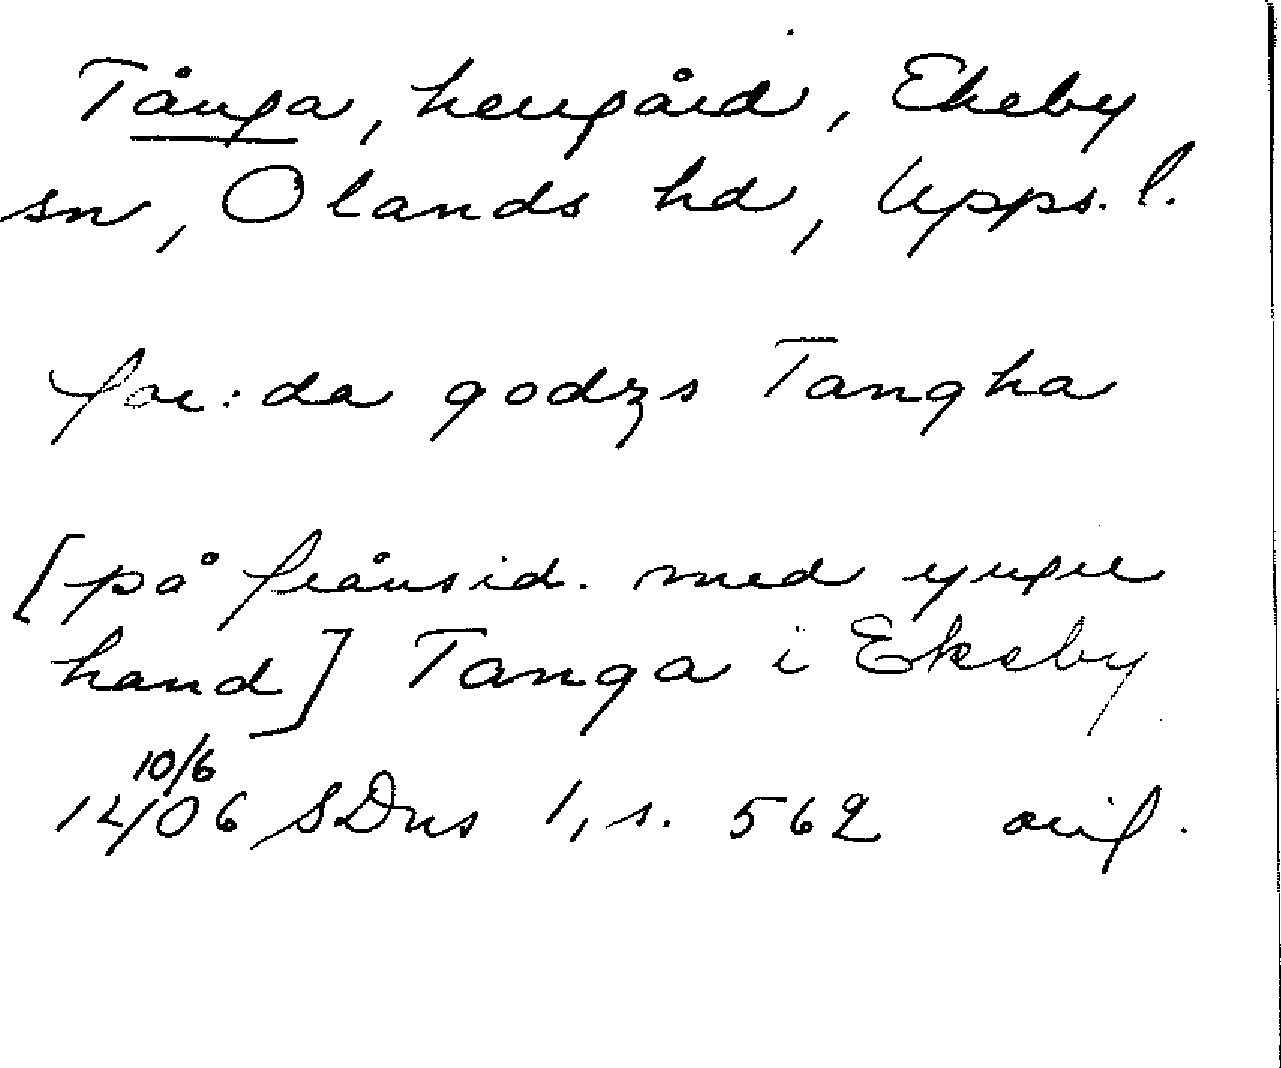 Tånga, herrgård, Ekeby
sn, Olands hd, Upps. l.
for:da godzs Tangha
[på frånsid. med yngre
hand] Tanga i Ekeby
10/6
1406 SDns 1, s. 562 orig.